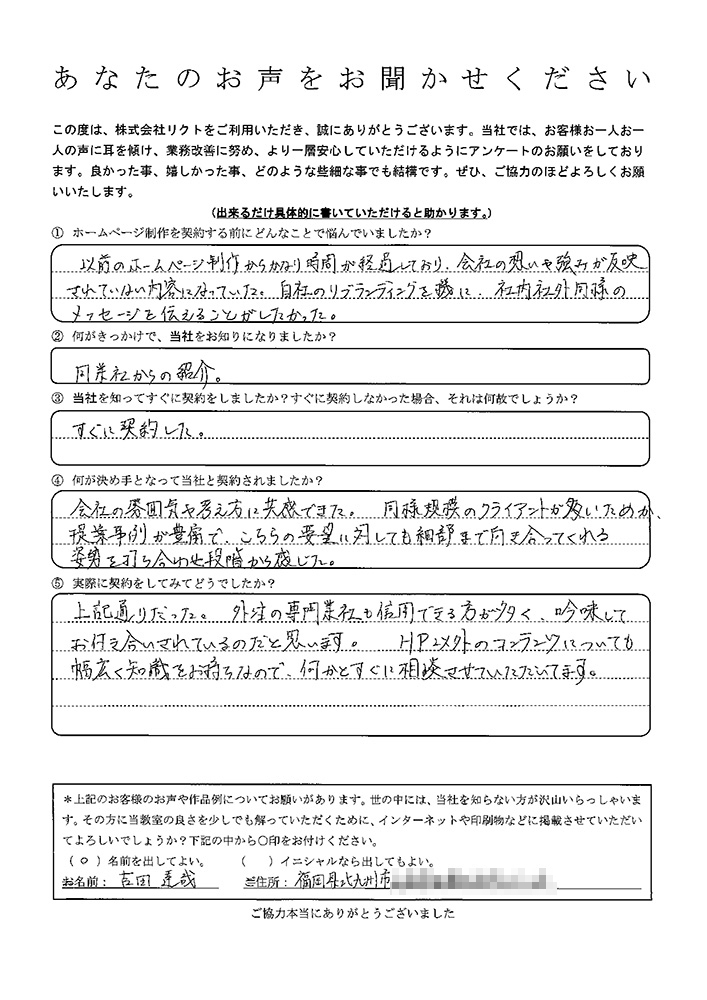 あなたのお声をお聞かせください
この度は、株式会社リクトをご利用いただき、誠にありがとうございます。当社では、お客様お一人お一
人の声に耳を傾け、業務改善に努め、より一層安心していただけるようにアンケートのお願いをしており
ます。良かった事、嬉しかった事、どのような些細な事でも結構です。ぜひ、ご協力のほどよろしくお願
いいたします。
(出来るだけ具体的に書いていただけると助かります。)
① ホームページ制作を契約する前にどんなことで悩んでいましたか？
以前のホームページ制作からかなり時間が経過しており、会社の想いや強みが反映
されていない内容になっていた。自社のリブランディングを機に、社内社外同様の
メッセージを伝えることがしたかった。
② 何がきっかけで、当社をお知りになりましたか？
同業社からの紹介。
③ 当社を知ってすぐに契約をしましたか？すぐに契約しなかった場合、それは何故でしょうか？
すぐに契約した。
④ 何が決め手となって当社と契約されましたか？
会社の雰囲気や考え方に共感できた。 同様規模のクライアントが多いためか、
提案事例が豊富で、こちらの要望に対しても細部まで向き合ってくれる
姿勢を打ち合わせ段階から感じた。
⑤ 実際に契約をしてみてどうでしたか？
上記通りだった。 外注の専門業社も信用できる方が多く、吟味して
お付き合いされているのだと思います。 HP以外のコンテンツについても
幅広く知識をお持ちなので、何かとすぐに相談させていただいてます。
＊上記のお客様のお声や作品例についてお願いがあります。世の中には、当社を知らない方が沢山いらっしゃいま
す。その方に当教室の良さを少しでも解っていただくために、インターネットや印刷物などに掲載させていただい
てよろしいでしょうか？下記の中から〇印をお付けください。
（ o ）名前を出してよい。 （ ）イニシャルなら出してもよい。
お名前： 吉田 達哉 ご住所： 福岡県北九州市
ご協力本当にありがとうございました